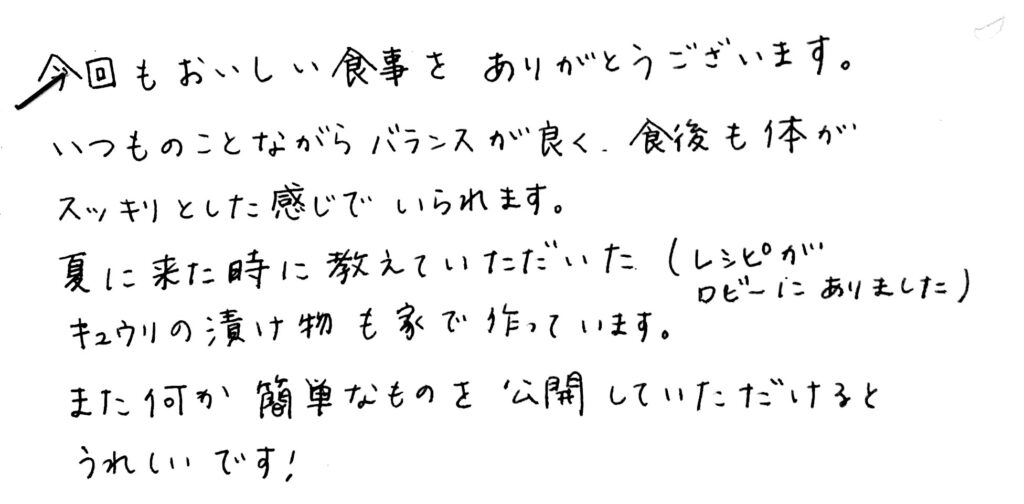 今回もおいしい食事を ありがとうございます。
いつものことながらバランスが良く、食後も体が
スッキリとした感じでいられます。
夏に来た時に教えていただいた (レシピが
ロビーにありました)
キュウリの漬け物も家で作っています。
また何か簡単なものを公開していただけると
うれしいです!